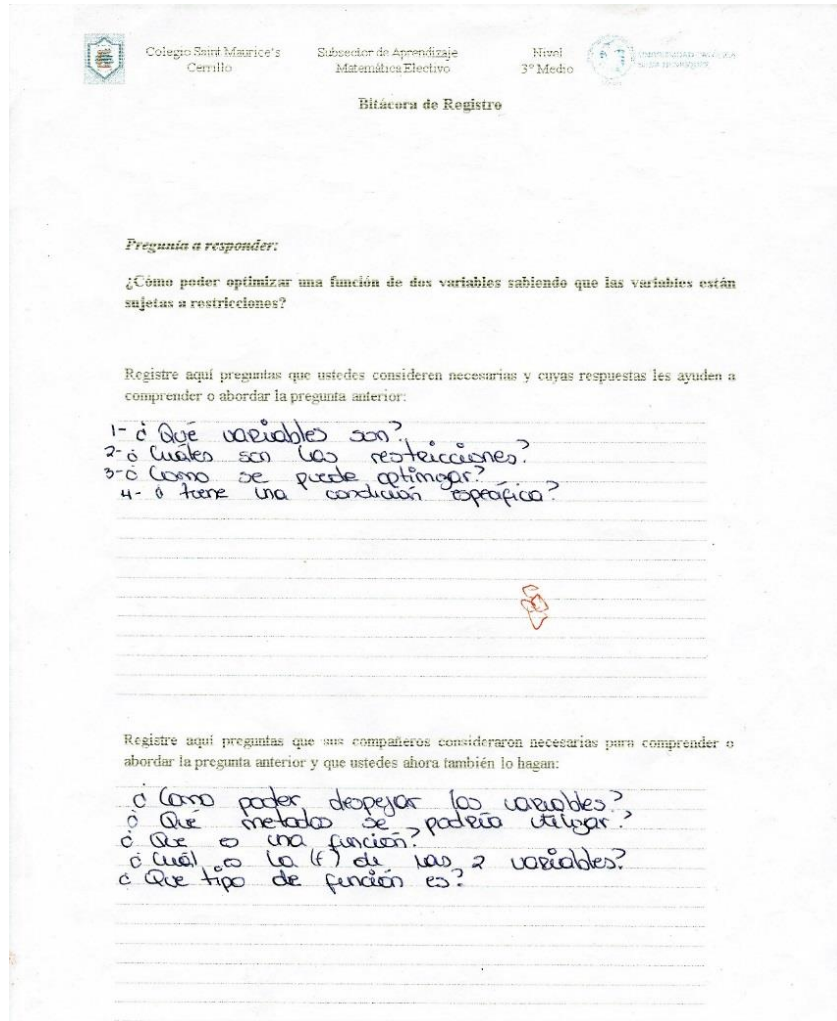 Colegio Saint Maurice's
Cerrillo
Subsector de Aprendizaje
Matemática Electivo
Nivel
3° Medio
Bitácora de Registro
Pregunta a responder:
¿Cómo poder optimizar una función de dos variables sabiendo que las variables están
sujetas a restricciones?
Registre aquí preguntas que ustedes consideren necesarias y cuyas respuestas les ayuden a
comprender o abordar la pregunta anterior:
1- ¿ Qué variables son?
2- ¿ Cuáles son las restricciones?
3- ¿ Como se puede optimizar?
4- ¿ tiene una condición específica?
Registre aquí preguntas que sus compañeros consideraron necesarias para comprender o
abordar la pregunta anterior y que ustedes ahora también lo hagan:
¿ Como poder despejar las variables?
¿ Qué metodos se podría utilizar?
¿ Que es una función?
¿ Cuál es la (f) de las 2 variables?
¿ Que tipo de función es?